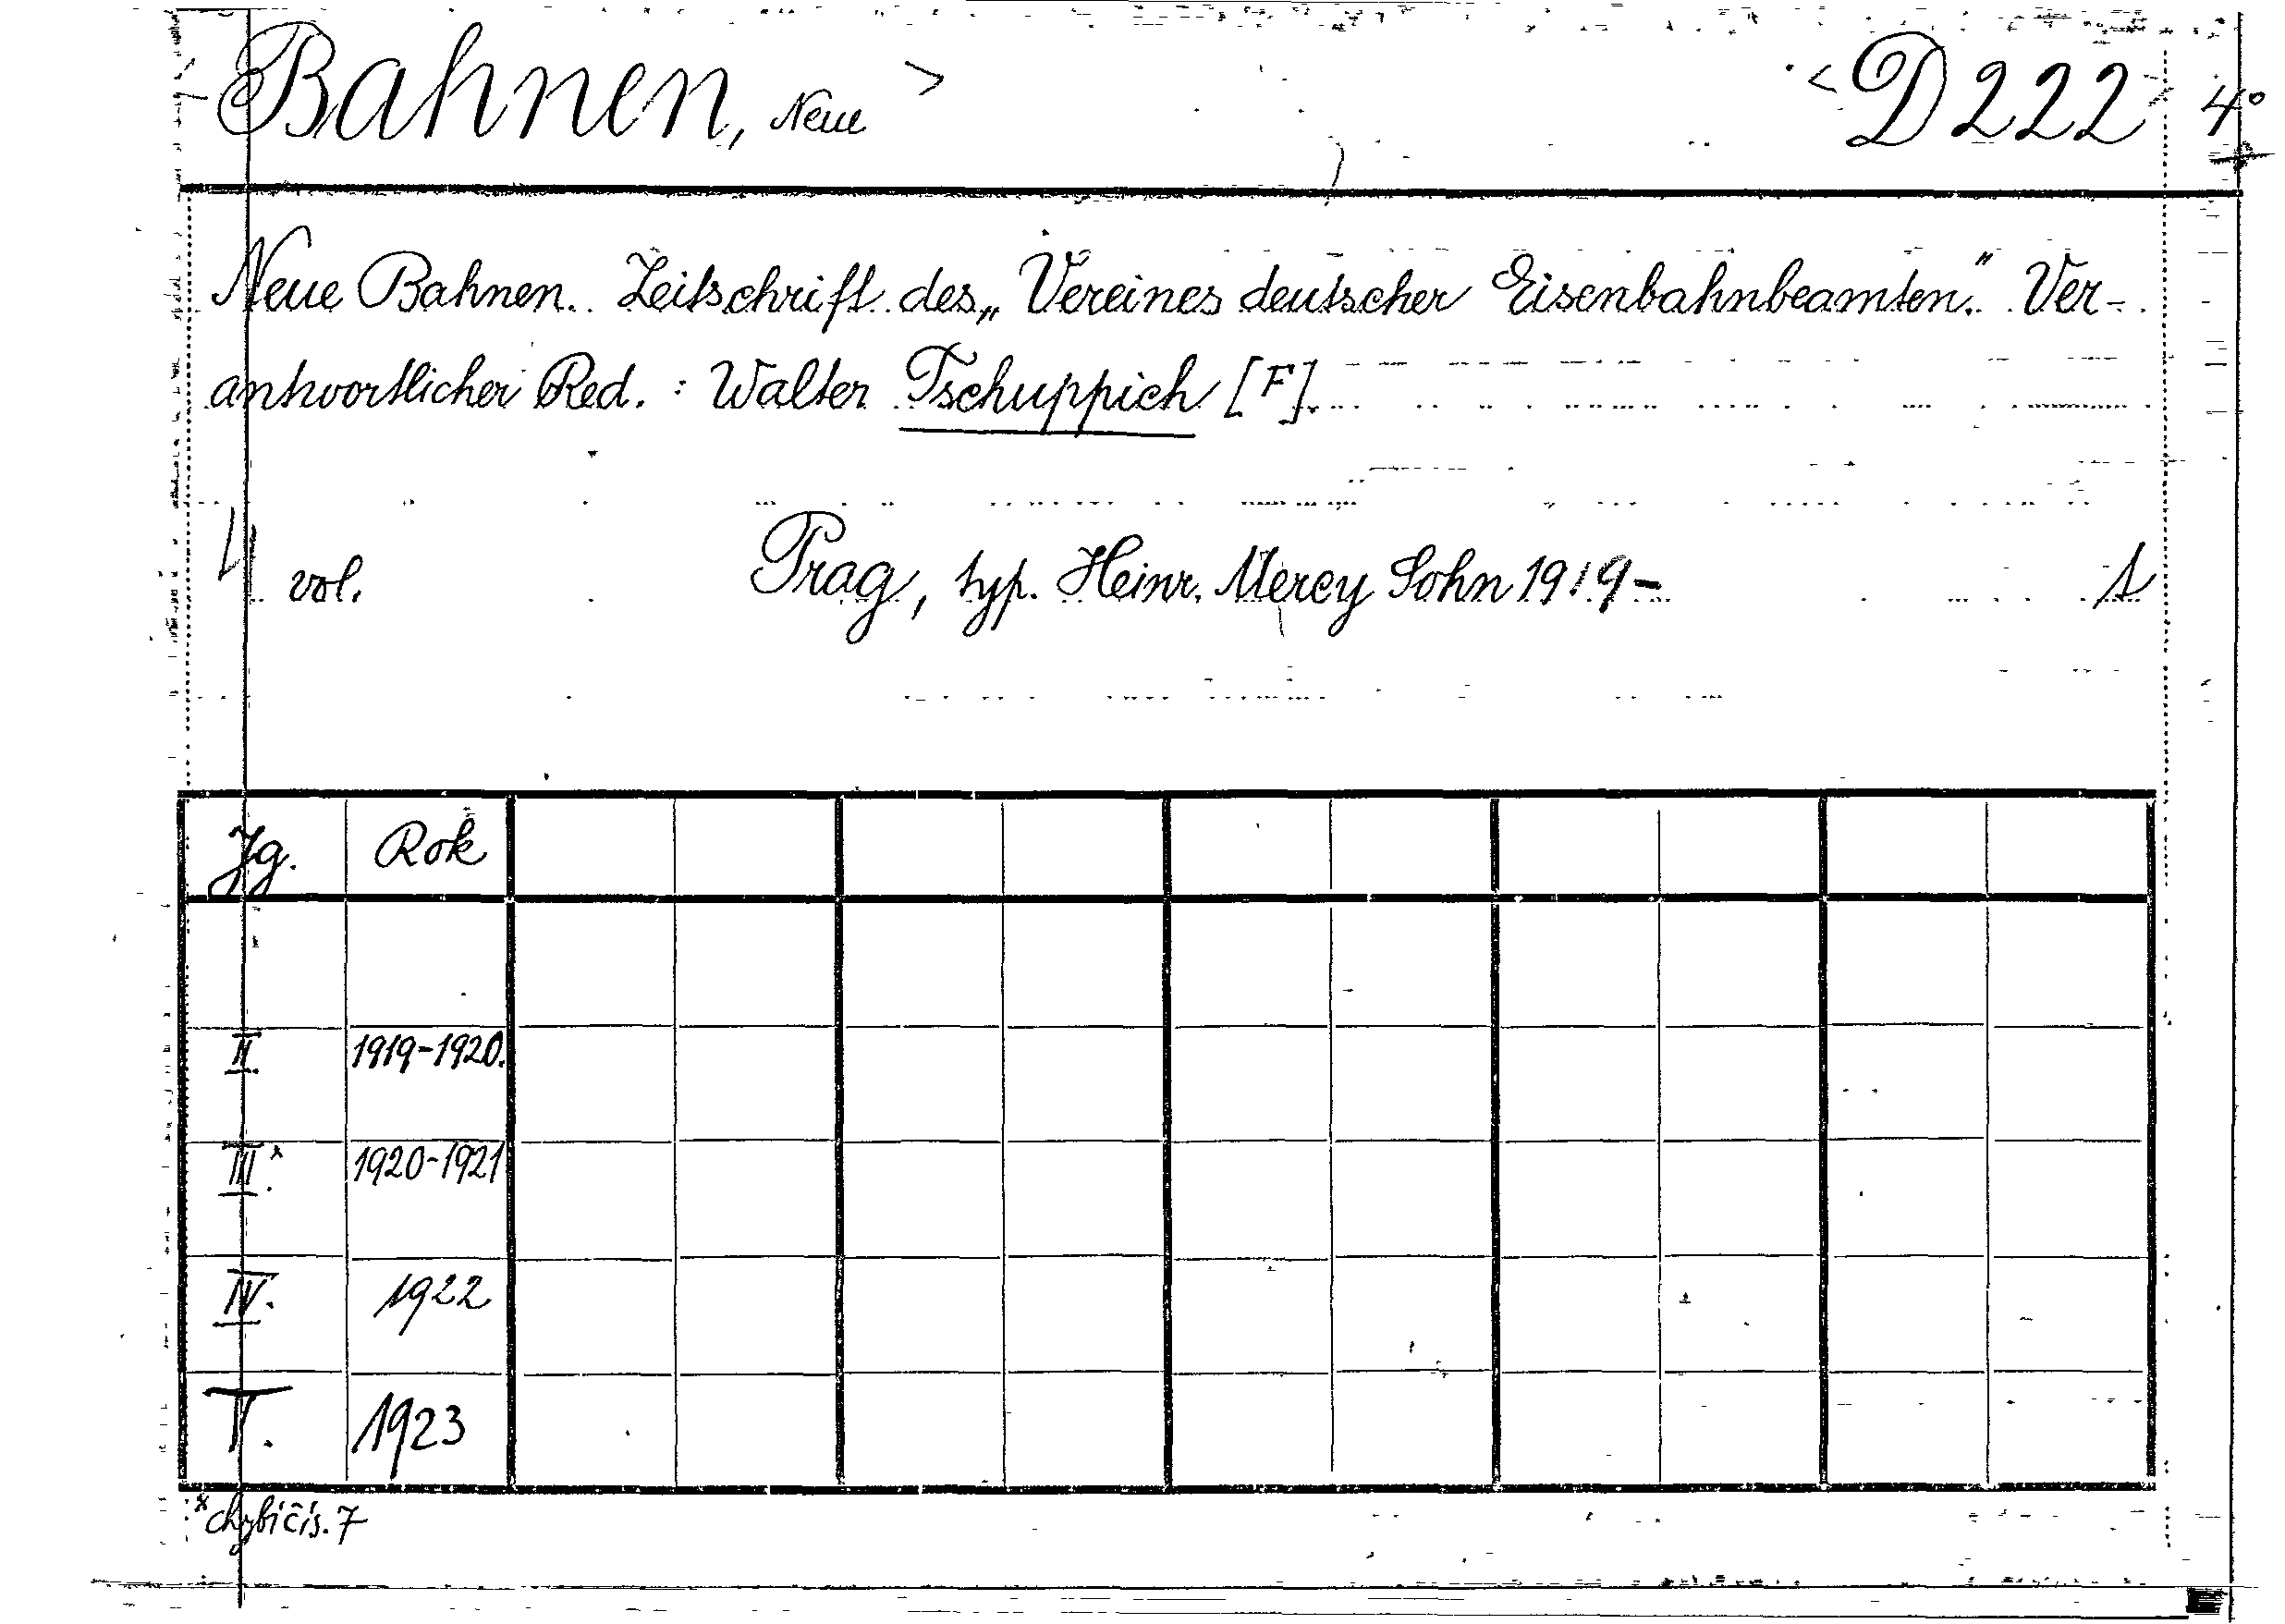 Bahnen, Neue > < D 222 4°
Neue Bahnen. Zeitschrift des „Vereines deutscher Eisenbahnbeamten." Ver-
antwortlicher Red. : Walter Tschuppich [F].
4 vol. Prag, typ. Heinr. Mercy Sohn 1919-
Jg. Rok
II. 1919-1920.
III.x 1920-1921
IV. 1922
V. 1923
x chybí čís. 7